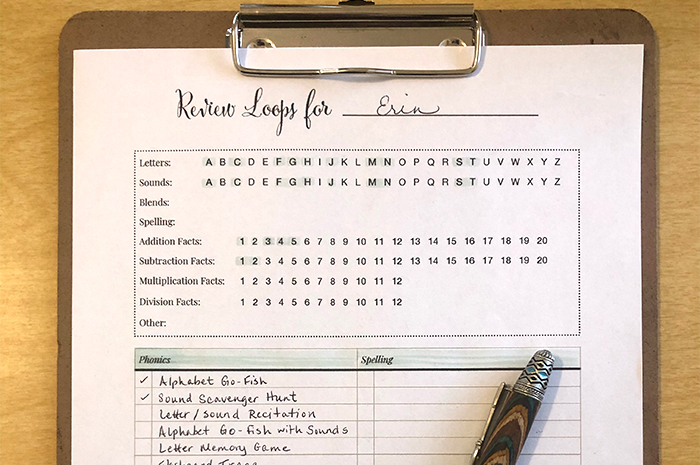 Review Loops for Erin
Letters: A B C D E F G H I J K L M N O P Q R S T U V W X Y Z
Sounds: A B C D E F G H I J K L M N O P Q R S T U V W X Y Z
Blends:
Spelling:
Addition Facts: 1 2 3 4 5 6 7 8 9 10 11 12 13 14 15 16 17 18 19 20
Subtraction Facts: 1 2 3 4 5 6 7 8 9 10 11 12 13 14 15 16 17 18 19 20
Multiplication Facts: 1 2 3 4 5 6 7 8 9 10 11 12
Division Facts: 1 2 3 4 5 6 7 8 9 10 11 12
Other:
Phonics Spelling
✓ Alphabet Go-Fish
✓ Sound Scavenger Hunt
Letter/sound Recitation
Alphabet Go-fish with Sounds
Letter Memory Game